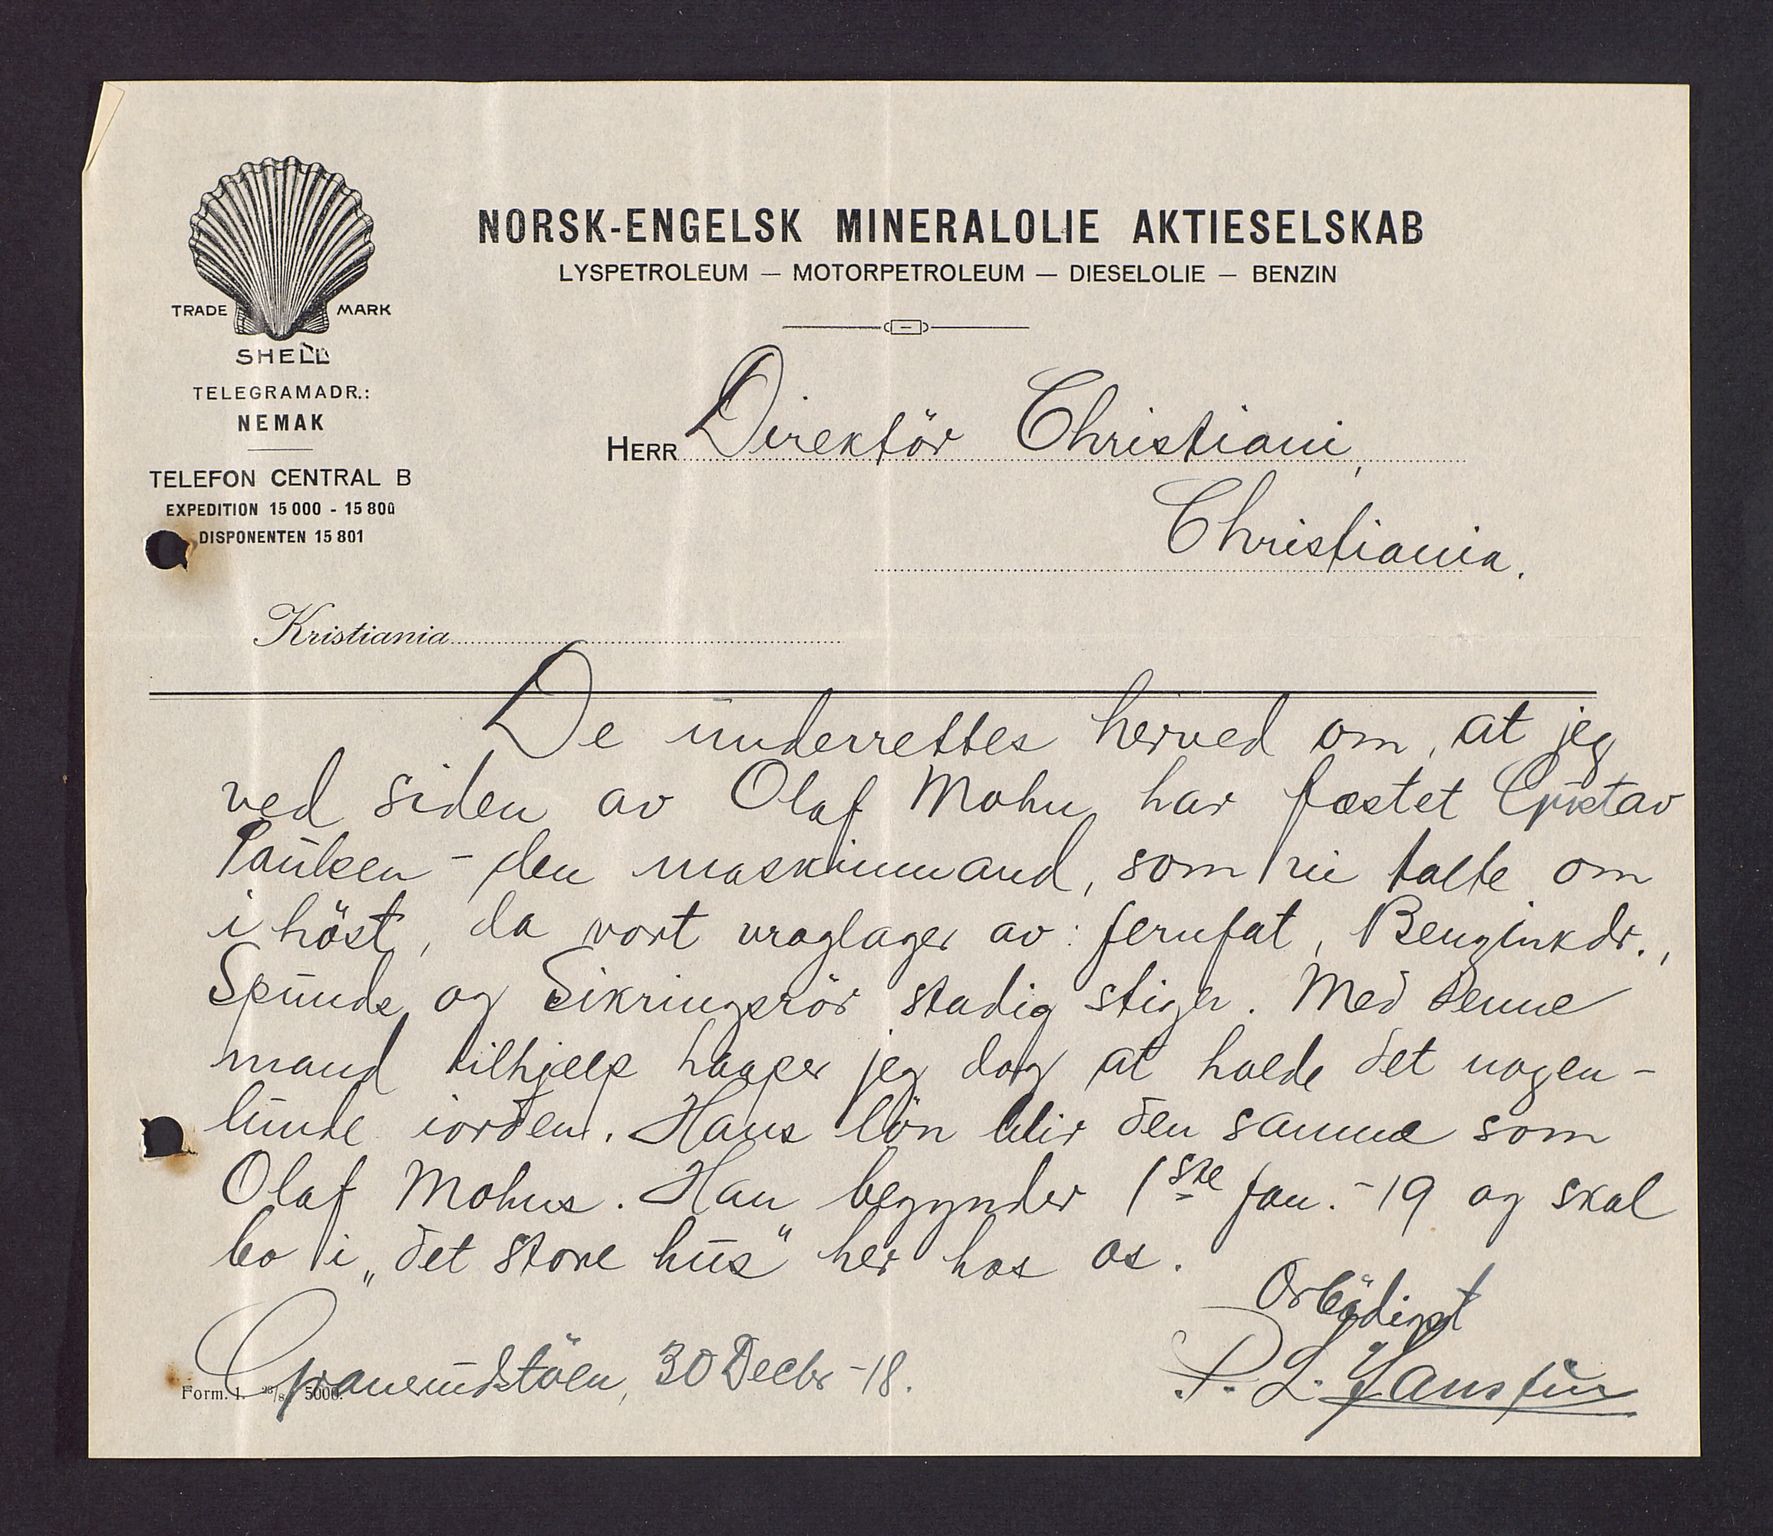 NORSK-ENGELSK MINERALOLIE AKTIESELSKAB
LYSPETROLEUM — MOTORPETROLEUM — DIESELOLIE — BENZIN
TRADE MARK
SHELL
TELEGRAMADR.:
NEMAK
TELEFON CENTRAL B
EXPEDITION 15 000 - 15 800
DISPONENTEN 15 801
HERR Direktör Christiani,
Christiania.
Kristiania
De underrettes herved om, at jeg
ved siden av Olaf Mohn har fæstet Gustav
Paulsen - den maskinmand, som vi talte om
i höst, da vort vraglager av: jernfat, Benzinkdr.,
Spunds og Sikringsrör stadig stiger. Med denne
mand tilhjelp haaper jeg dog at holde det nogen-
lunde iorden. Hans lön blir den samme som
Olaf Mohns. Han begynder 1ste Jan. -19 og skal
bo i „det store hus" her hos os.
Örbödigst
P. L. Hans
Granerudstöen, 30 Decbr -18.
Form. 1. 23/8 5000.